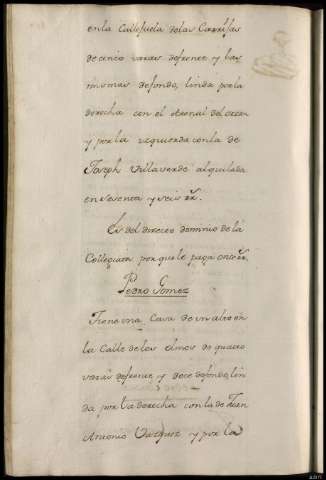 en la Callejuela de las Carrifas
de cinco varas de frente y las
mismas de fondo, linda por la
derecha con el
y por la izquierda con la de
Joseph Villaverde alquilada
en sesenta y seis rs.
Es del directo dominio de la
Collegiata por que le paga once rs.
Pedro Gomez
Tiene una Casa de un alto en
la Calle de los olmos de quatro
varas de frente y doce de fondo, lin
da por la derecha con la de Juan
Antonio Vazquez y por la